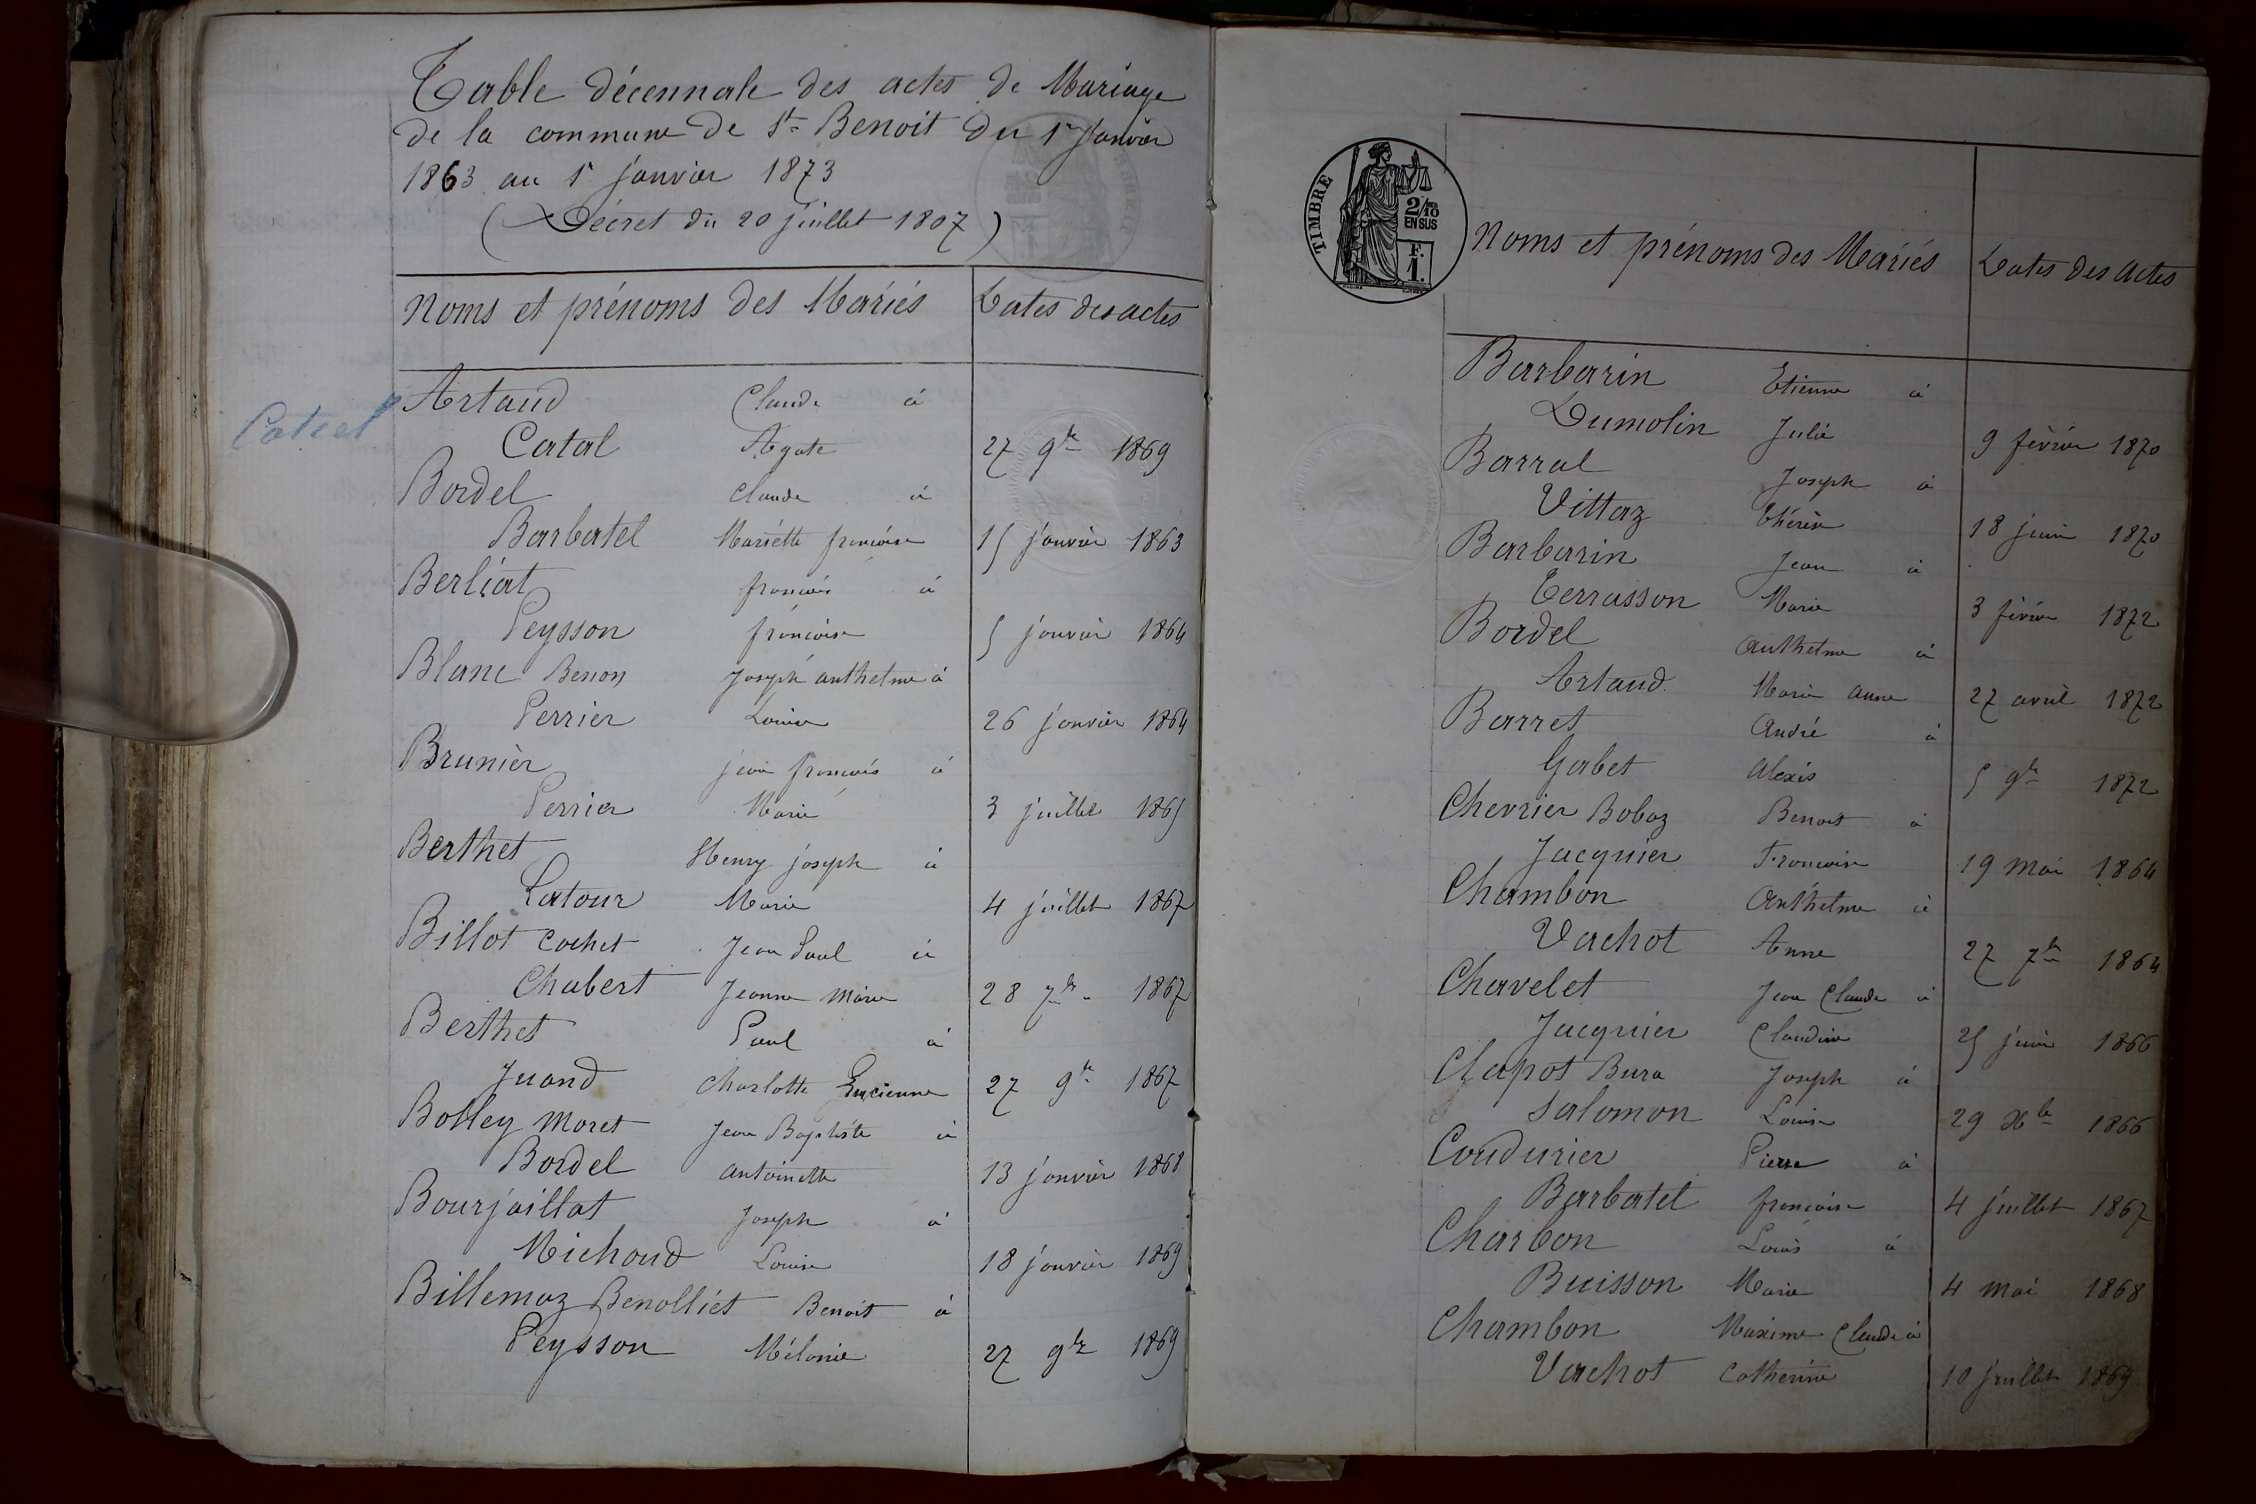 Table décennale des actes de Mariage
de la commune de St Benoit du 1r Janvier
1863 au 1r janvier 1873
(Décret du 20 juillet 1807)
Noms et prénoms des Mariés Dates des actes
Artaud Claude à
Catal Agate 27 9bre 1869
Bordel Claude à
Barbatel Mariette françoise 15 janvier 1863
Berliat françois à
Peysson françoise 5 janvier 1864
Blanc Benon Joseph anthelme à
Perrier Louise 26 janvier 1864
Brunier jean françois à
Perrier Marie 3 juillet 1865
Berthet Henry joseph à
Latour Marie 4 juillet 1867
Billot cochet Jean Paul à
Chabert Jeanne Marie 28 7bre 1867
Berthet Paul à
Juand Charlotte Lucienne 27 9bre 1867
Bolley Moret Jean Baptiste à
Bordel antoinette 13 janvier 1868
Bourjaillat Joseph à
Michoud Louise 18 janvier 1869
Billemaz Benolliet Benoit à
Peysson Mélanie 27 9bre 1869
TIMBRE
2/10
EN SUS
F.
1.
Noms et prénoms des Mariés Dates des actes
Barbarin Etienne à
Dumolin Julie 9 février 1870
Barral Joseph à
Vittaz Thérèse 18 juin 1870
Barbarin Jean à
Terrasson Marie 3 février 1872
Bordel Anthelme à
Artaud Marie anne 27 avril 1872
Barret André à
Gabet Alexis 5 9bre 1872
Chevrier Bobaz Benoit à
Jacquier Françoise 19 mai 1864
Chambon Anthelme à
Vachot Anne 27 7bre 1864
Chavelet Jean Claude à
Jacquier Claudine 25 juin 1866
Clapot Bura Joseph à
Salomon Louise 29 Xbre 1866
Coudurier Pierre à
Barbatel françoise 4 juillet 1867
Charbon Louis à
Buisson Marie 4 mai 1868
Chambon Maxime Claude à
Vachot Catherine 10 juillet 1869